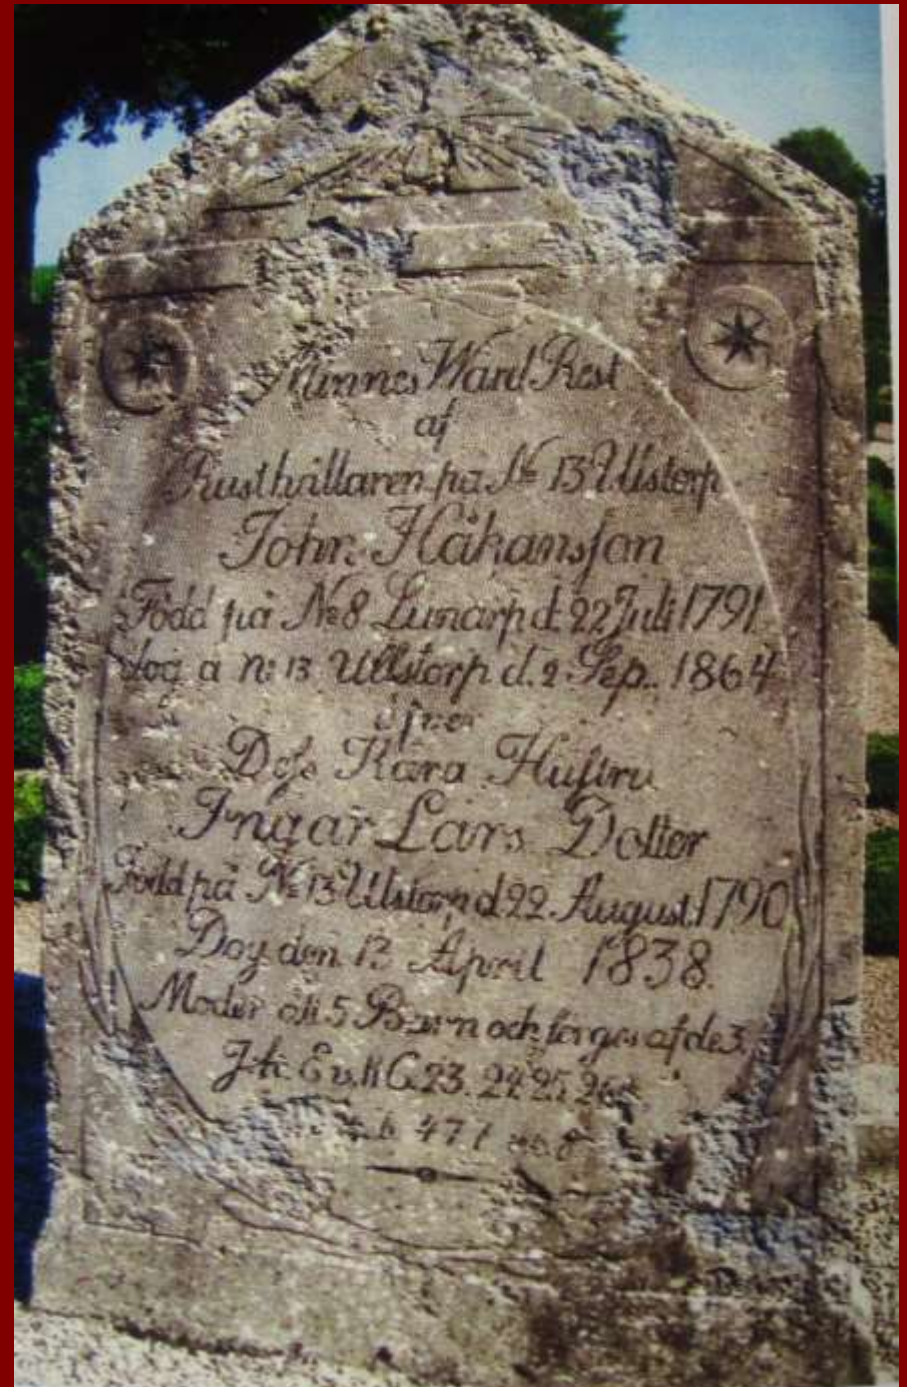 Minnes Ward Rest
af
Rusthållaren på No 13 Ulstorp
John Håkansson
Född på No 8 Lunarp d. 22 Juli 1791
dog å n: 13 Ullstorp d. 2 Sep. 1864
öfver
Dess Kära Hustru
Ingar Lars Dotter
Född på No 13 Ulstorp d 22 August. 1790
Dog den 13 April 1838.
Moder till 5 Barn och sörges af de 3,
C. 23. 24. 25. 26
47